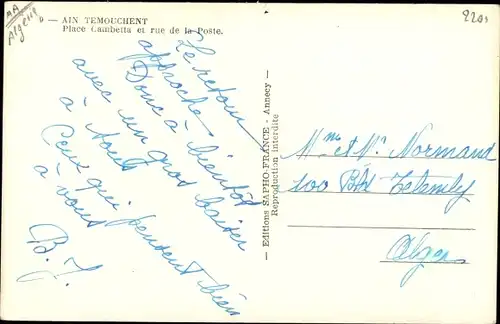 AA
Algérie
— AIN TEMOUCHENT
Place Gambetta et rue de la Poste.
2201
Le retour
approche.
Donc à bientôt
avec un gros baiser
à tous
Ceux qui pensent bien
à vous
B. J.
— Editions SAPHO-FRANCE - Annecy —
Reproduction interdite
Mme et Mr Normand
100 Bld Telemly
Alger